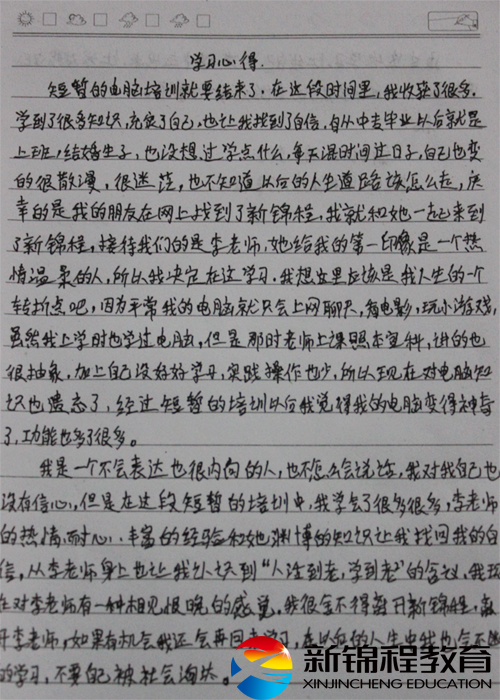 学习心得.
短暂的电脑培训就要结束了.在这段时间里,我收获了很多.
学到了很多知识,充实了自己,也让我找到了自信,自从中专毕业以后就是
上班,结婚生子,也没想过学点什么,每天混时间过日子,自己也变
的很散漫,很迷茫,也不知道以后的人生道路该怎么走,庆
幸的是我的朋友在网上找到了新锦程,我就和她一起来到
了新锦程,接待我们的是李老师,她给我的第一印象是一个热
情温柔的人,所以我决定在这学习.我想这里应该是我人生的一个
转折点吧,因为平常我的电脑就只会上网聊天,看电影,玩小游戏,
虽然我上学时也学过电脑,但是那时老师上课照本宣科,讲的也
很抽象,加上自己没好好学习,实践操作也少,所以现在对电脑知
识也遗忘了,经过短暂的培训以后我觉得我的电脑变得神奇
了,功能也多了很多。
我是一个不会表达也很内向的人,也不怎么会说话,我对我自己也
没有信心,但是在这段短暂的培训中,我学会了很多很多,李老师
的热情,耐心,丰富的经验和她渊博的知识让我找回我的自
信,从李老师身上也让我认识到"人活到老,学到老"的含义,我现
在对李老师有一种相见恨晚的感觉,我很舍不得离开新锦程,离
开李老师,如果有机会我还会再回来学习,在以后的人生中我也会不断
的学习,不要自己被社会淘汰。
新锦程教育
XINJINCHENG EDUCATION